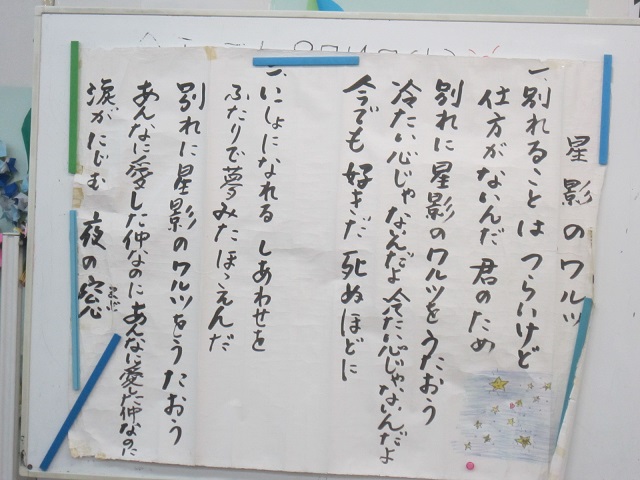 星影のワルツ
一、別れることはつらいけど
仕方がないんだ君のため
別れに星影のワルツをうたおう
冷たい心じゃないんだよ冷たい心じゃないんだよ
今でも好きだ死ぬほどに
二、いっしょになれるしあわせを
ふたりで夢みたほゝえんだ
別れに星影のワルツをうたおう
あんなに愛した仲なのにあんなに愛した仲なのに
涙がにじむ夜の窓